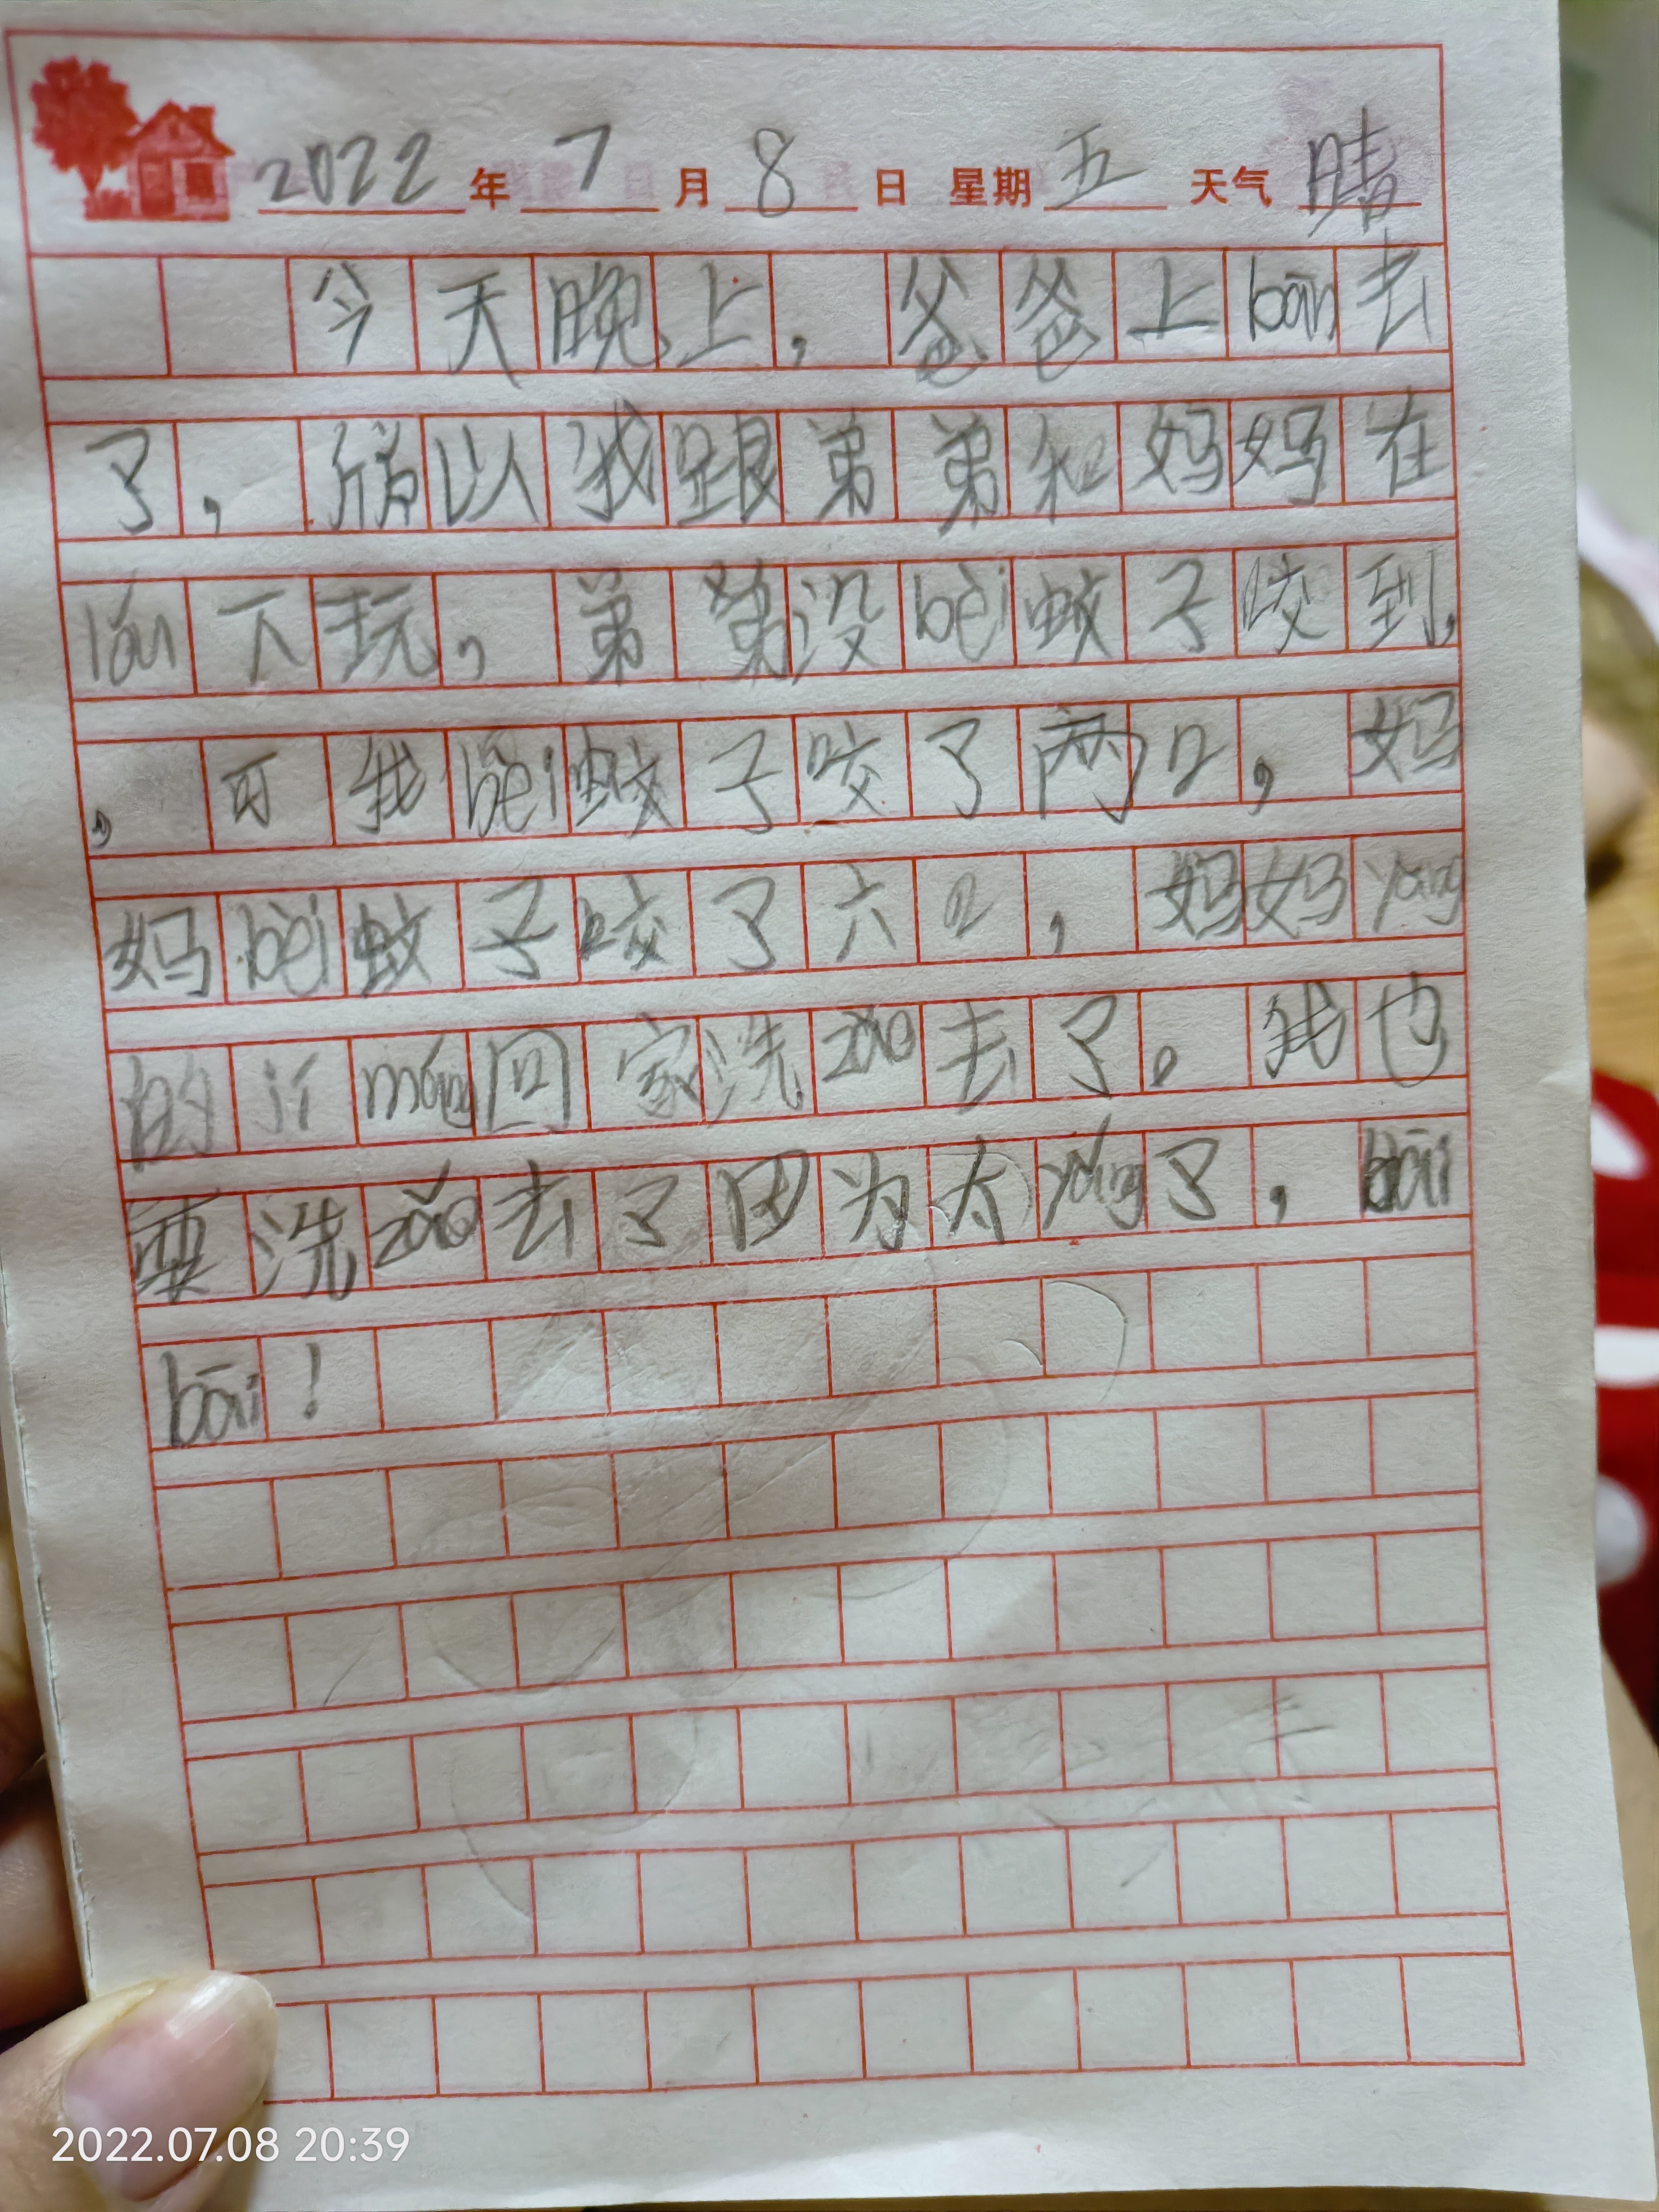 2022年7月8日 星期五 天气晴
今天晚上，爸爸上bān去
了，所以我跟弟弟和妈妈在
lóu下玩，弟弟没bèi蚊子咬到，
，可我bèi蚊子咬了两口，妈
妈bèi蚊子咬了六口，妈妈yǎng
的jí máng回家洗zǎo去了。我也
要洗zǎo去了因为太yǎng了，bāi
bāi！
2022.07.08 20:39